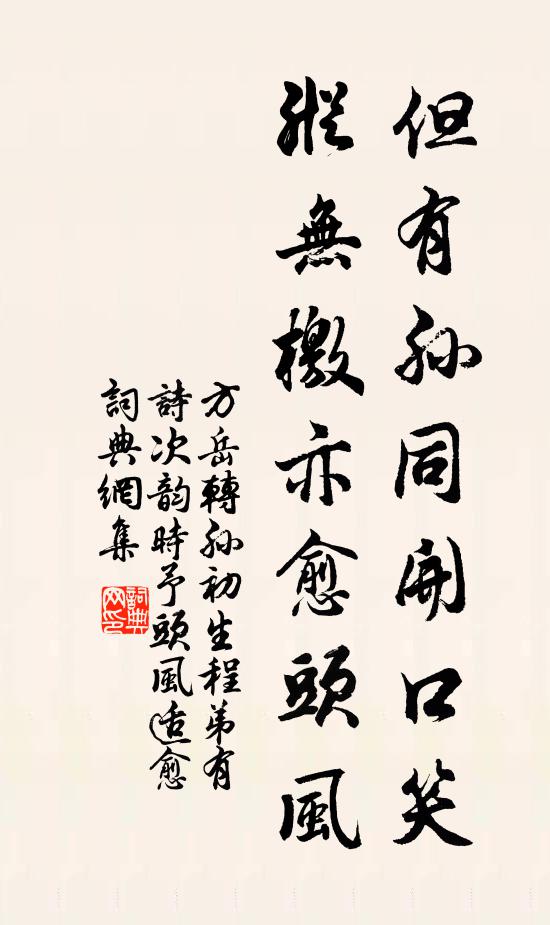 但有孙同開口笑
縱無檄亦愈頭風
方岳轉孙初生程弟有
詩次韵時予頭風适愈
詞典網集
詞典网印